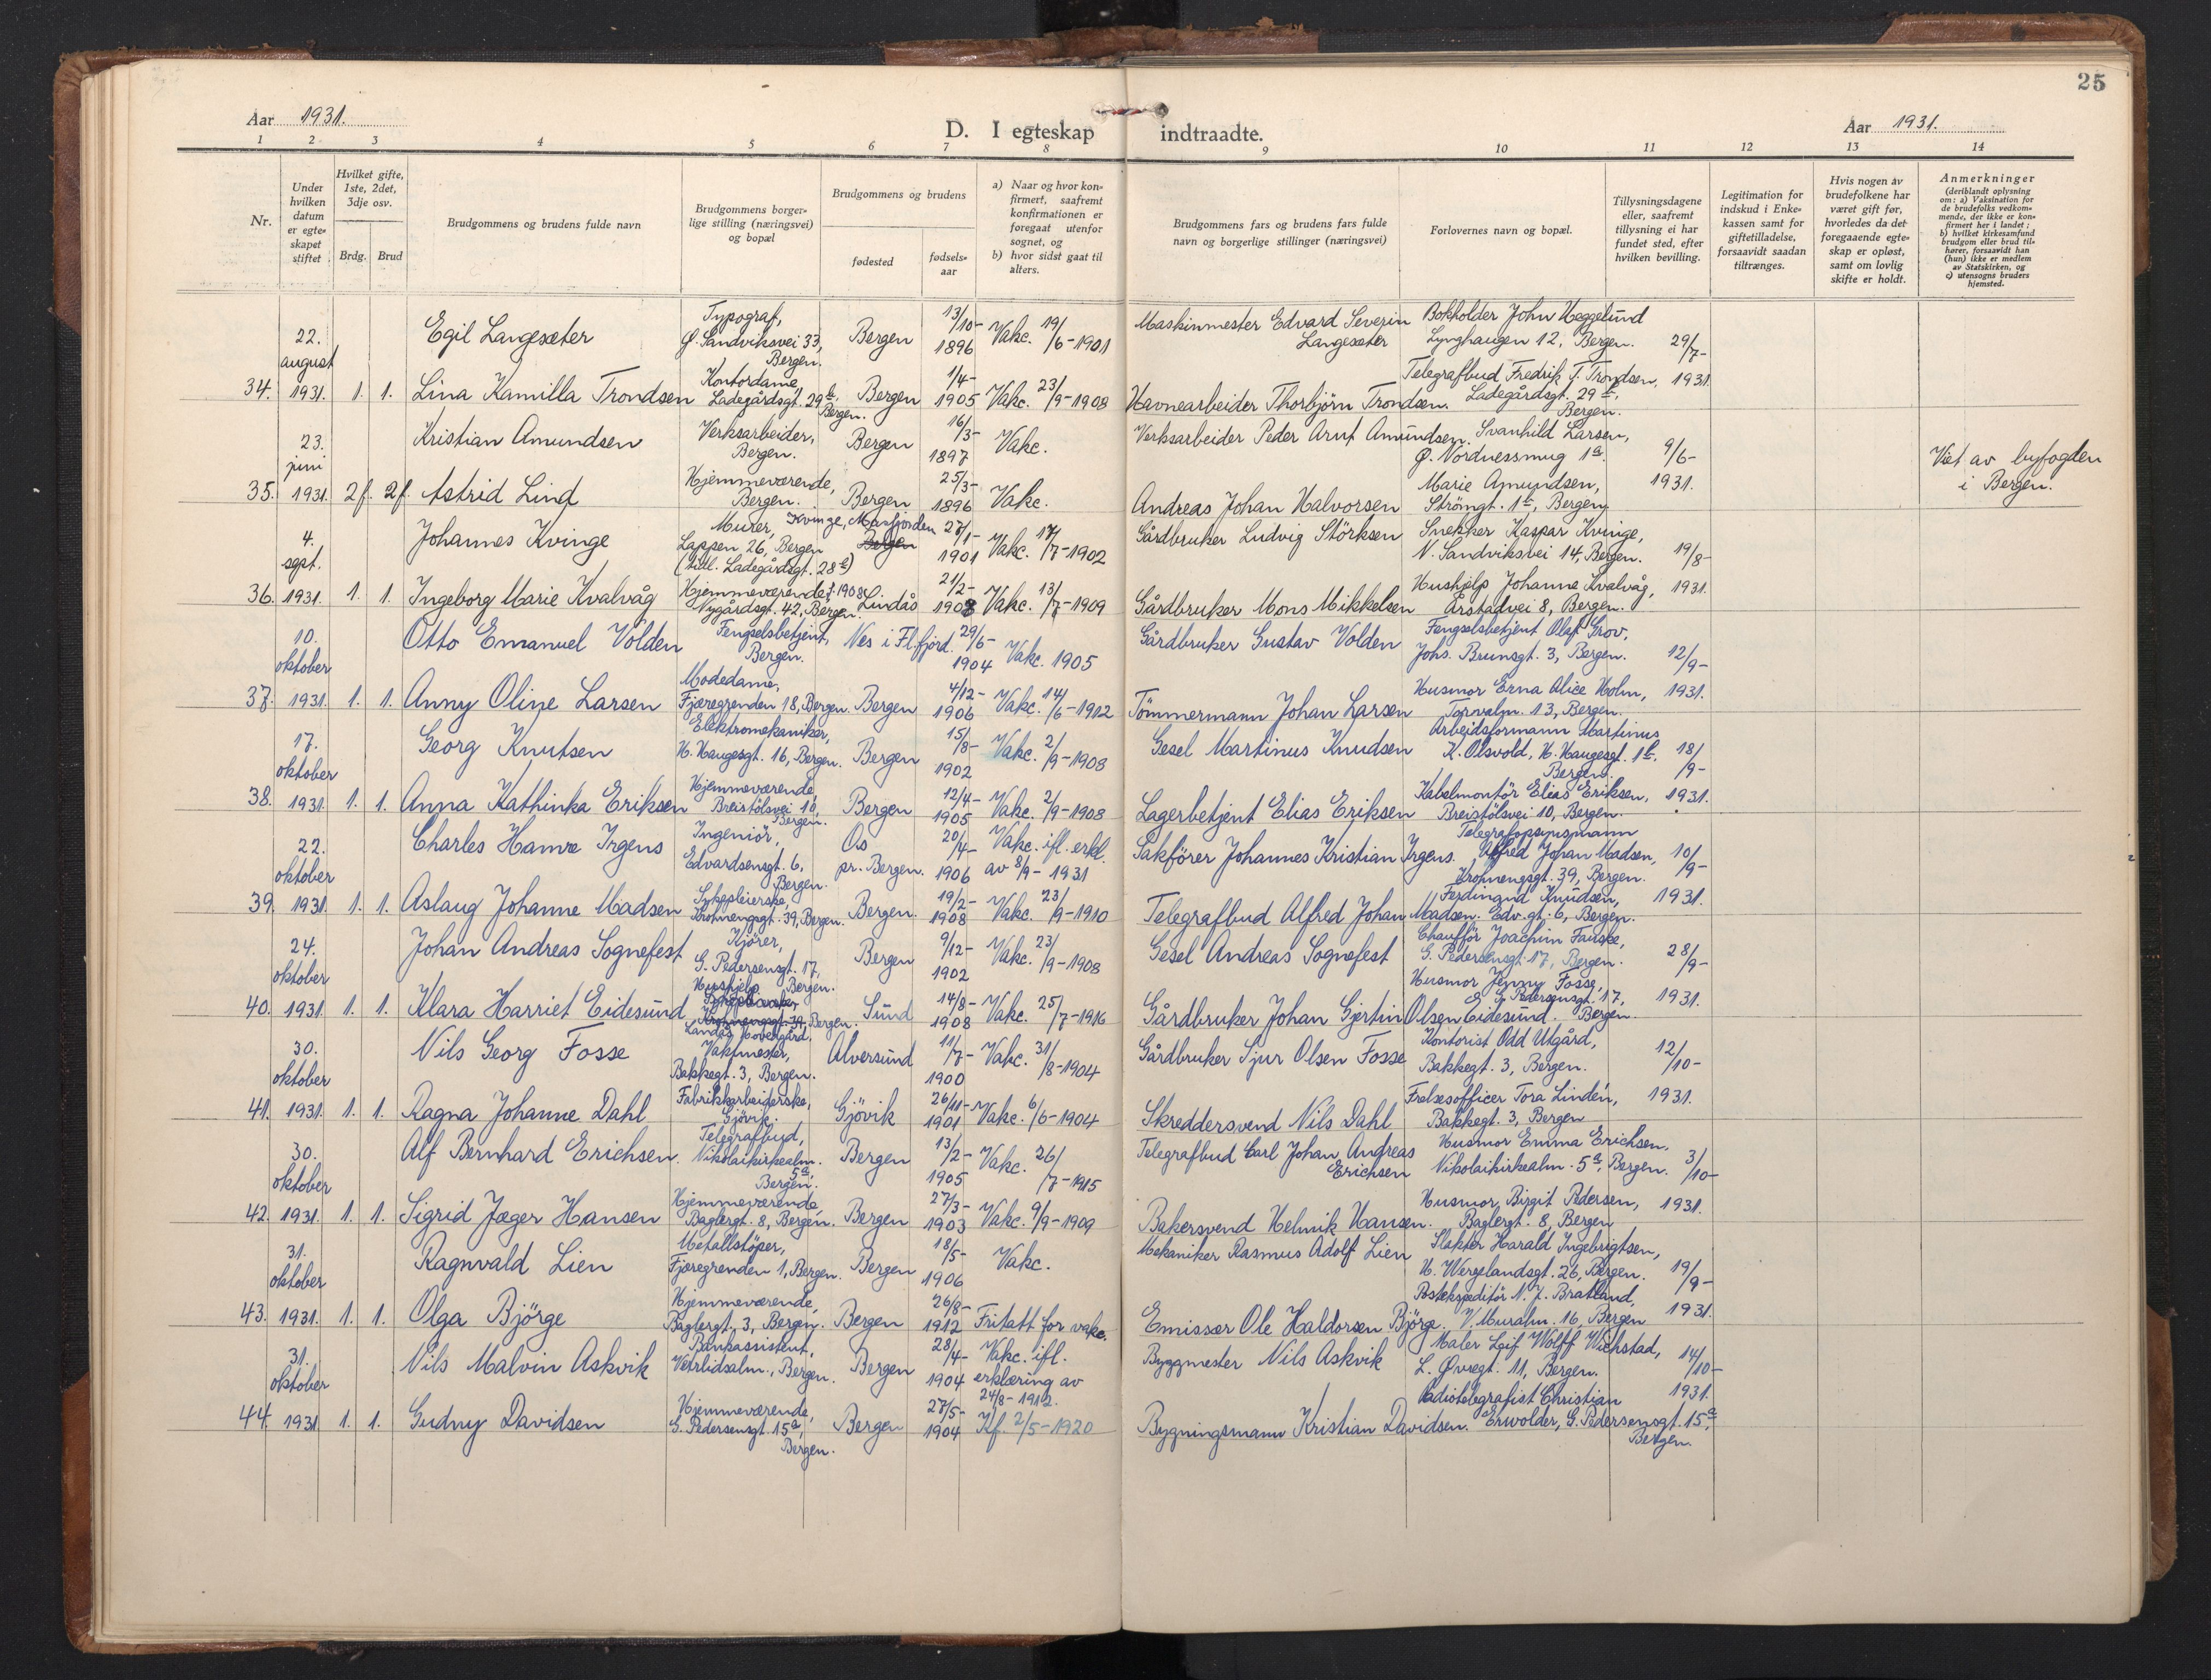 25
Aar 1931.
D. I egteskap indtraadte.
Aar 1931.
1 2 3 4 5 6 7 8 9 10 11 12 13 14
Nr.
Under hvilken datum er egteskapet stiftet
Hvilket gifte, 1ste, 2det, 3dje osv.
Brdg. Brud
Brudgommens og brudens fulde navn
Brudgommens borgerlige stilling (næringsvei) og bopæl
Brudgommens og brudens
fødested
fødselsaar
a) Naar og hvor konfirmert, saafremt konfirmationen er foregaat utenfor sognet, og
b) hvor sidst gaat til alters.
Brudgommens fars og brudens fars fulde navn og borgerlige stillinger (næringsvei)
Forlovernes navn og bopæl.
Tillysningsdagene eller, saafremt tillysning ei har fundet sted, efter hvilken bevilling.
Legitimation for indskud i Enkekassen samt for giftetilladelse, forsaavidt saadan tiltrænges.
Hvis nogen av brudefolkene har været gift før, hvorledes da det foregaaende egteskap er opløst, samt om lovlig skifte er holdt.
Anmerkninger
(deriblandt oplysning om: a) Vaksination for de brudefolks vedkommende, der ikke er konfirmert her i landet; b) hvilket kirkesamfund brudgom eller brud tilhører, forsaavidt han (hun) ikke er medlem av Statskirken, og c) utensogns bruders hjemsted.
34. 22. august 1931. 1. 1.
Egil Langesæter Typograf, Ø. Sandviksvei 33, Bergen. Bergen 13/10-1896 Vakc. 19/6-1901 Maskinmester Edvard Severin Langesæter Bokholder John Heggelund Lynghaugen 12, Bergen. 29/7-1931.
Lina Kamilla Trondsen Kontordame, Ladegårdsgt. 29b, Bergen. Bergen 1/4-1905 Vakc. 23/9-1908 Havnearbeider Thorbjörn Trondsen. Telegrafbud Fredrik T. Trondsen, Ladegårdsgt. 29b, Bergen.
35. 23. juni 1931. 2f. 2f.
Kristian Amundsen Verksarbeider, Bergen. Bergen 16/3-1897 Vakc. Verksarbeider Peder Arnt Amundsen. Svanhild Larsen, Ø. Nordnessmug 1a. 9/6-1931. Viet av byfogden i Bergen.
Astrid Lind Hjemmeværende, Bergen. Bergen 25/3-1896 Vakc. Andreas Johan Halvorsen Marie Amundsen, Strömgt. 1b, Bergen.
36. 4. sept. 1931. 1. 1.
Johannes Kvinge Murer, Lappen 26, Bergen (tidl. Ladegårdsgt. 28b) Kvinge, Masfjorden Bergen 27/1-1901 Vakc. 17/7-1902 Gårdbruker Ludvig Störksen Snekker Kaspar Kvinge, N. Sandviksvei 14, Bergen. 19/8-1931.
Ingeborg Marie Kvalvåg Hjemmeværende, Nygårdsgt. 42, Bergen. Lindås 21/2-1908 Vakc. 13/7-1909 Gårdbruker Mons Mikkelsen Hushjelp Johanne Kvalvåg, Årstadvei 8, Bergen.
37. 10. oktober 1931. 1. 1.
Otto Emanuel Volden Fengselsbetjent, Bergen. Nes i Fl.fjord. 29/6-1904 Vakc. 1905 Gårdbruker Gustav Volden Fengselsbetjent Olaf Grov, Johs. Brunsgt. 3, Bergen. 12/9-1931.
Anny Oline Larsen Modedame, Fjæregrenden 18, Bergen. Bergen 4/12-1906 Vakc. 14/6-1912 Tömmermann Johan Larsen Husmor Erna Alice Holm, Torvalm. 13, Bergen.
38. 17. oktober 1931. 1. 1.
Georg Knutsen Elektromekaniker, H. Haugesgt. 16, Bergen. Bergen 15/8-1902 Vakc. 2/9-1908 Gesel Martinus Knudsen Arbeidsformann Martinus K. Olsvold, H. Haugesgt. 1b, Bergen. 18/9-1931.
Anna Kathinka Eriksen Hjemmeværende, Breistölsvei 10, Bergen. Bergen 12/4-1905 Vakc. 2/9-1908 Lagerbetjent Elias Eriksen Kabelmontör Elias Eriksen, Breistölsvei 10, Bergen.
39. 22. oktober 1931. 1. 1.
Charles Hamre Irgens Ingeniör, Edvardsensgt. 6, Bergen. Os pr. Bergen. 20/4-1906 Vakc. ifl. erkl. av 8/9-1931 Sakförer Johannes Kristian Irgens. Telegrafopsynsmann Alfred Johan Madsen, Krohnengsgt. 39, Bergen. 10/9-1931.
Aslaug Johanne Madsen Sykepleierske, Krohnengsgt. 39, Bergen. Bergen. 19/2-1908 Vakc. 23/9-1910 Telegrafbud Alfred Johan Madsen. Ferdinand Knudsen, Edv.gt. 6, Bergen.
40. 24. oktober 1931. 1. 1.
Johan Andreas Sognefest Kjörer, G. Pedersensgt. 17, Bergen. Bergen 9/12-1902 Vakc. 23/9-1908 Gesel Andreas Sognefest Chaufför Joachim Fauske, G. Pedersensgt. 17, Bergen. 28/9-1931.
Klara Harriet Eidesund Hushjelp Krohnengsgt. 39, Bergen. Landås Hovedgård. Sund 14/8-1908 Vakc. 25/7-1916 Gårdbruker Johan Gjertin Olsen Eidesund. Husmor Jenny Fosse, G. Pedersensgt. 17, Bergen.
41. 30. oktober 1931. 1. 1.
Nils Georg Fosse Vaktmester, Bakkegt. 3, Bergen. Alversund 11/7-1900 Vakc. 31/8-1904 Gårdbruker Sjur Olsen Fosse Kontorist Odd Utgård, Bakkegt. 3, Bergen. 12/10-1931.
Ragna Johanne Dahl Fabrikkarbeiderske, Gjövik. Gjövik 26/11-1901 Vakc. 6/6-1904 Skreddersvend Nils Dahl Frelsesofficer Tora Lindén, Bakkegt. 3, Bergen
42. 30. oktober 1931. 1. 1.
Alf Bernhard Erichsen. Telegrafbud, Nikolaikirkealm. 5a, Bergen. Bergen 13/2-1905 Vakc. 26/7-1915 Telegrafbud Carl Johan Andreas Erichsen Husmor Emma Erichsen, Nikolaikirkealm. 5a, Bergen. 3/10-1931.
Sigrid Jæger Hansen Hjemmeværende, Baglergt. 8, Bergen. Bergen 27/3-1903 Vakc. 9/9-1909 Bakersvend Helmik Hansen. Husmor Birgit Pedersen, Baglergt. 8, Bergen
43. 31. oktober 1931. 1. 1.
Ragnvald Lien Metallstöper, Fjæregrenden 1, Bergen. Bergen 18/5-1906 Vakc. Mekaniker Rasmus Adolf Lien Slakter Harald Ingebrigtsen, H. Wergelandsgt. 26, Bergen. 19/9-1931.
Olga Björge Hjemmeværende, Baglergt. 3, Bergen. Bergen 26/8-1912 Fritatt for vakc. Emissær Ole Haldorsen Björge. Postekspeditör N. J. Bratland, V. Muralm. 16, Bergen
44. 31. oktober 1931. 1. 1.
Nils Malvin Askvik Bankassistent, Vetrlidsalm., Bergen. Bergen 28/4-1904 Vakc. ifl. erklæring av 24/8-1912. Byggmester Nils Askvik Maler Leif Wolff Wichstad, L. Øvregt. 11, Bergen. 14/10-1931.
Gudny Davidsen Hjemmeværende, G. Pedersensgt. 15a, Bergen. Bergen 27/5-1904 Kf. 2/5-1920 Bygningsmann Kristian Davidsen. Radiotelegrafist Christian Erwolder, G. Pedersensgt. 15a, Bergen.